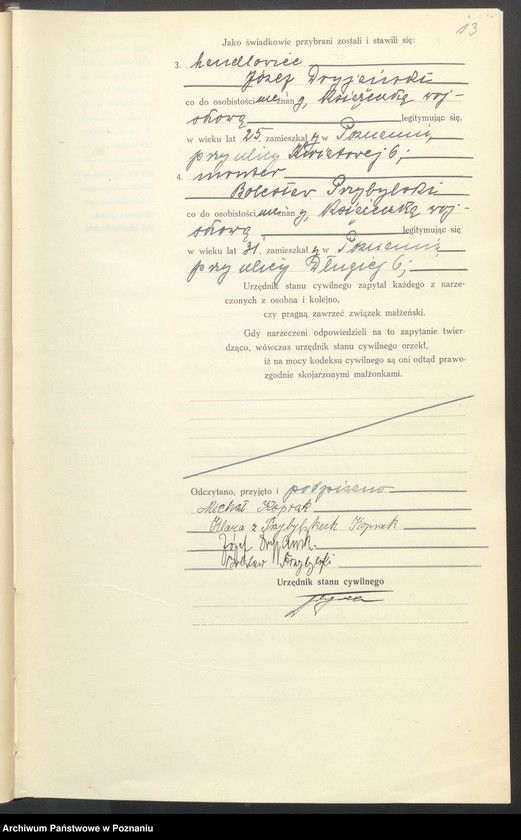 13
Jako świadkowie przybrani zostali i stawili się:
3. handlowiec
Józef Dryjański
co do osobistości nieznany, książeczką woj-
skową legitymując się,
w wieku lat 25, zamieszkały w Poznaniu,
przy ulicy Kwiatowej 6;
4. monter
Bolesław Przybylski
co do osobistości nieznany, książeczką woj-
skową, legitymując się
w wieku lat 31, zamieszkały w Poznaniu
przy ulicy Długiej 6;
Urzędnik stanu cywilnego zapytał każdego z narze-
czonych z osobna i kolejno,
czy pragną zawrzeć związek małżeński.
Gdy narzeczeni odpowiedzieli na to zapytanie twier-
dząco, wówczas urzędnik stanu cywilnego orzekł,
iż na mocy kodeksu cywilnego są oni odtąd prawo-
zgodnie skojarzonymi małżonkami.
Odczytano, przyjęto i podpisano
Michał Koprak
Klara z Przybylskich Koprak
Józef Dryjański.
Bolesław Przybylski
Urzędnik stanu cywilnego
Archiwum Państwowe w Poznaniu